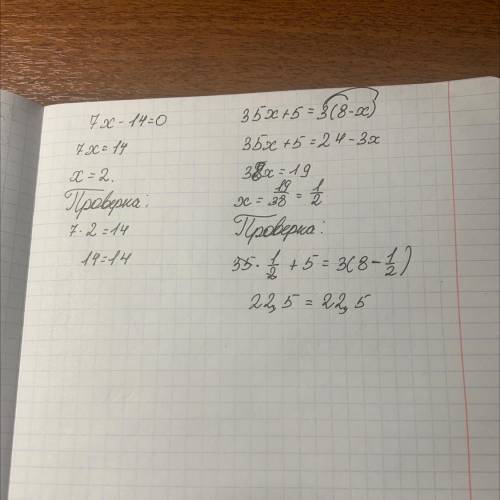 7x - 14=0
7x=14
x=2.
Проверка:
7·2=14
14=14
35x+5=3(8-x)
35x+5=24-3x
38x=19
x=19/38=1/2
Проверка:
35·1/2+5=3(8-1/2)
22,5=22,5